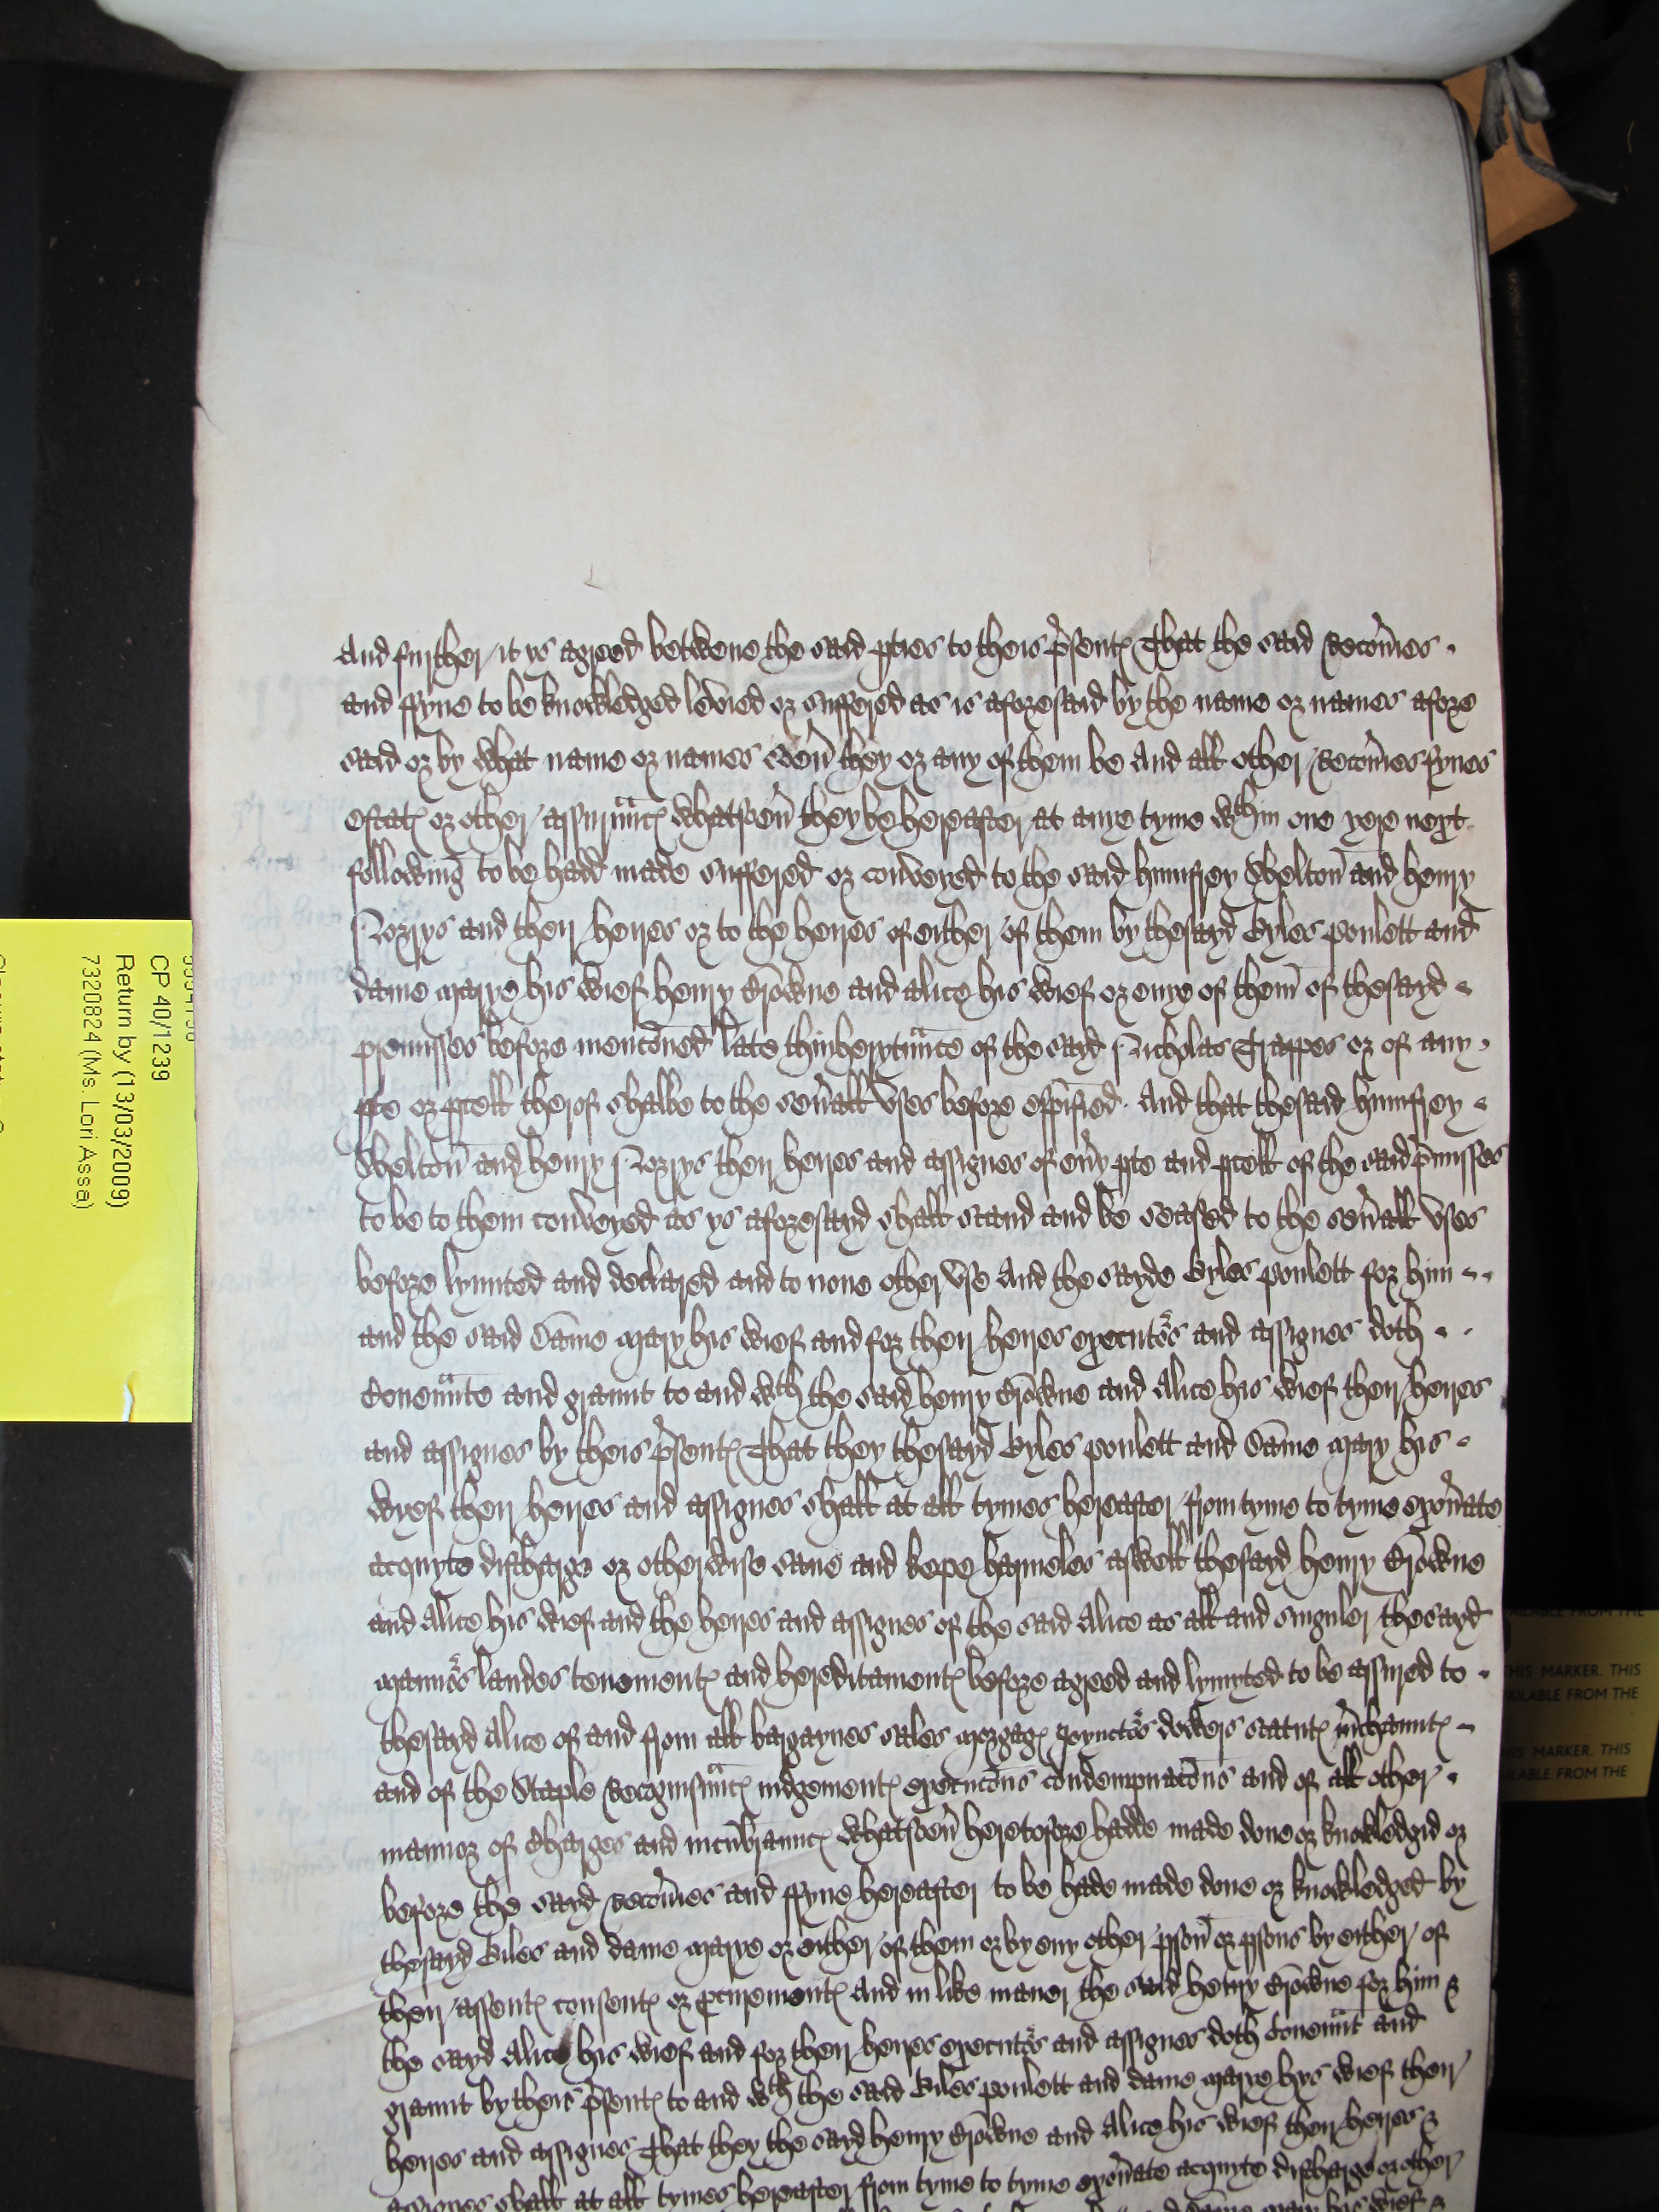 And further it ys agreed betwene the said pties to theis pſentꝭ That the said Recoůies
and ffyne to be knowledged levied or suffered as is aforesaid by the name or names afore
said or by what name or names soeůr they or any of them be And all other Recoůies fynes
estatꝭ or other assurauncꝭ whatsoeůr they be hereafter at anye tyme wthin one yere next
following to be hadd made suffered or conveied to the said humfrey Shelton and henry
Norrys and their heires or to the heires of either of them by thesayd Gyles poulett and
dame marye his wief henry Browne and alice his wief or enye of them of thesayd
premisses before menconed late thinherytaunce of the sayd Nicholas Trappes or of any
pte or pcell therof shalbe to the seůall vses before espified And that thesaid humfrey
Shelton and henry Norrys their heires and assignes of eůy pte and pcell of the said pmisses
to be to them conveyed as ys aforesayd shall stand and be seased to the seůall vses
before lymited and declared and to none other vse And the sayde Gyles poulett for him
and the said Dame mary his wief and for their heires executors and assignes doth
Couenaunte and graunt to and wth the said henry Browne and Alice his wief their heires
and assignes by theis pſentꝭ That they thesayd Gyles poulett and Dame mary his
wyef their heires and assignes shall at all tymes hereafter from tyme to tyme exoůate
acquyte discharge or otherwise saue and kepe harmeles aswell thesayd henry Browne
and Alice his wief and the heires and assignes of the said Alice as all and singuler thesayd
mannors landes tenementꝭ and hereditamentꝭ before agreed and lymyted to be assured to
thesayd Alice of and from all bargaynes sales morgagꝭ Joynctors dowers statutꝭ mchauntꝭ
and of the Staple Recognisauncꝭ iudgementꝭ execucons condempnacons and of all other
mannor of Charges and incubrauncꝭ whatsoeůr heretofore hadde made done or knowledgid or
before the sayd Recoůies and ffyne hereafter to be hade made done or knowledged by
thesayd Giles and dame marye or either of them or by eny other pson or psons by either of
their assentꝭ consentꝭ or pcurementꝭ And in like maner the said henry Browne for him &
the sayd Alice his wief and for their heires executors and assignes doth Couenaunt and
graunt by theis pſentꝭ to and wth the said Giles poulett and dame marye hys wief their
heires and assignes That they the sayd henry Browne and Alice his wief their heires &
assignes shall at all tymes hereafter from tyme to tyme exoůate acquyte discharge or other
CP 40/1239
Return by (13/03/2009)
7320824 (Ms. Lori Asse
THIS MARKER. THIS
AILABLE FROM THE
HIS MARKER. THIS
ILABLE FROM THE